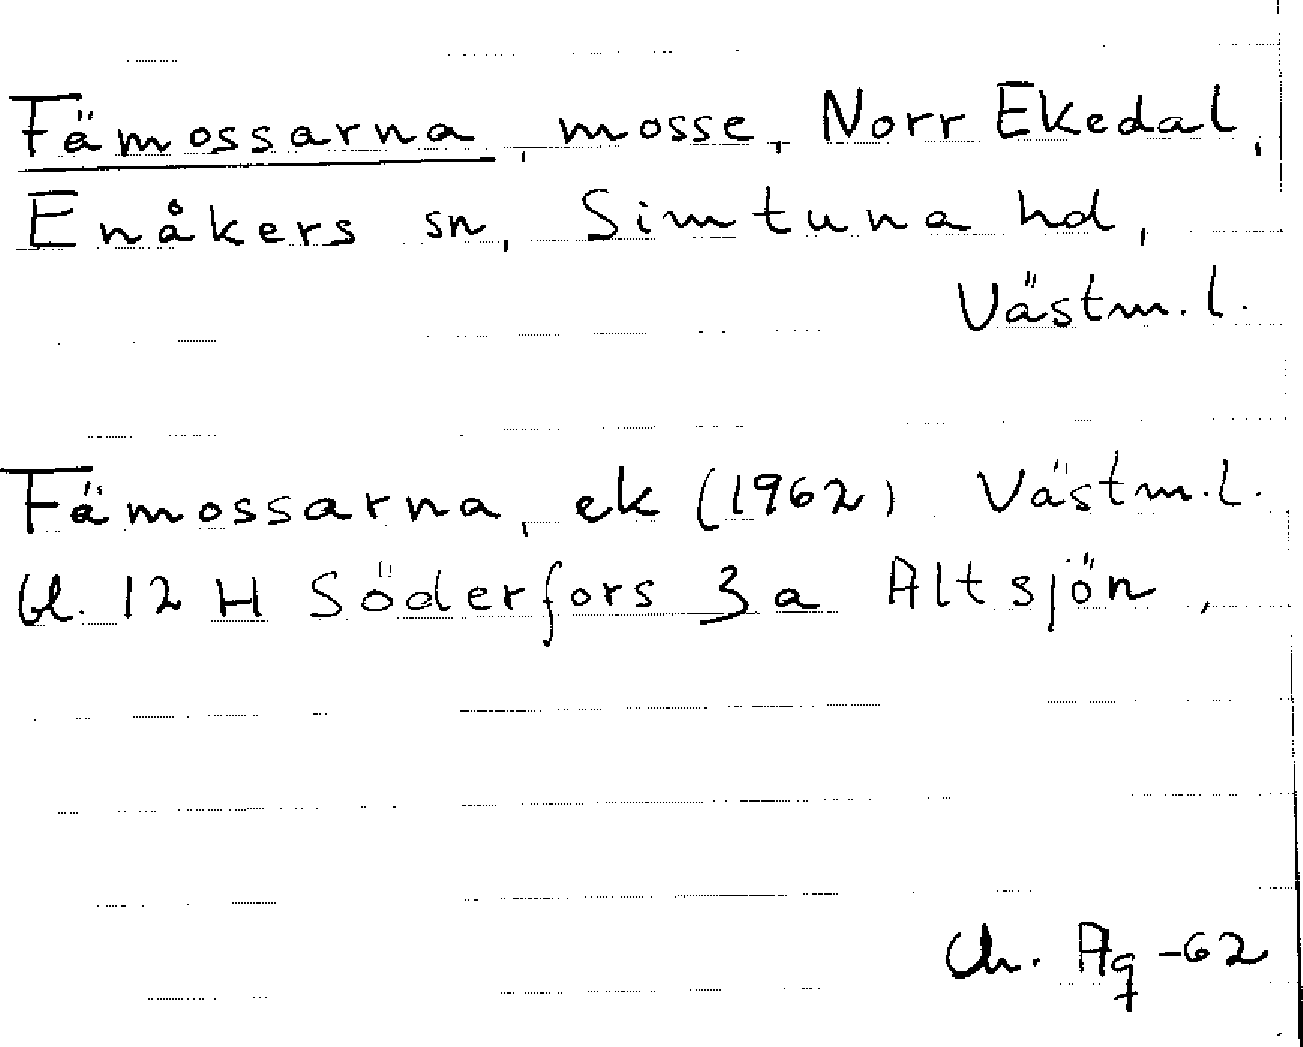 Fämossarna, mosse, Norr Ekedal,
Enåkers sn, Simtuna hd,
Västm. l.
Fämossarna, ek (1962) Västm. l.
bl. 12 H Söderfors 3 a Altsjön,
-62